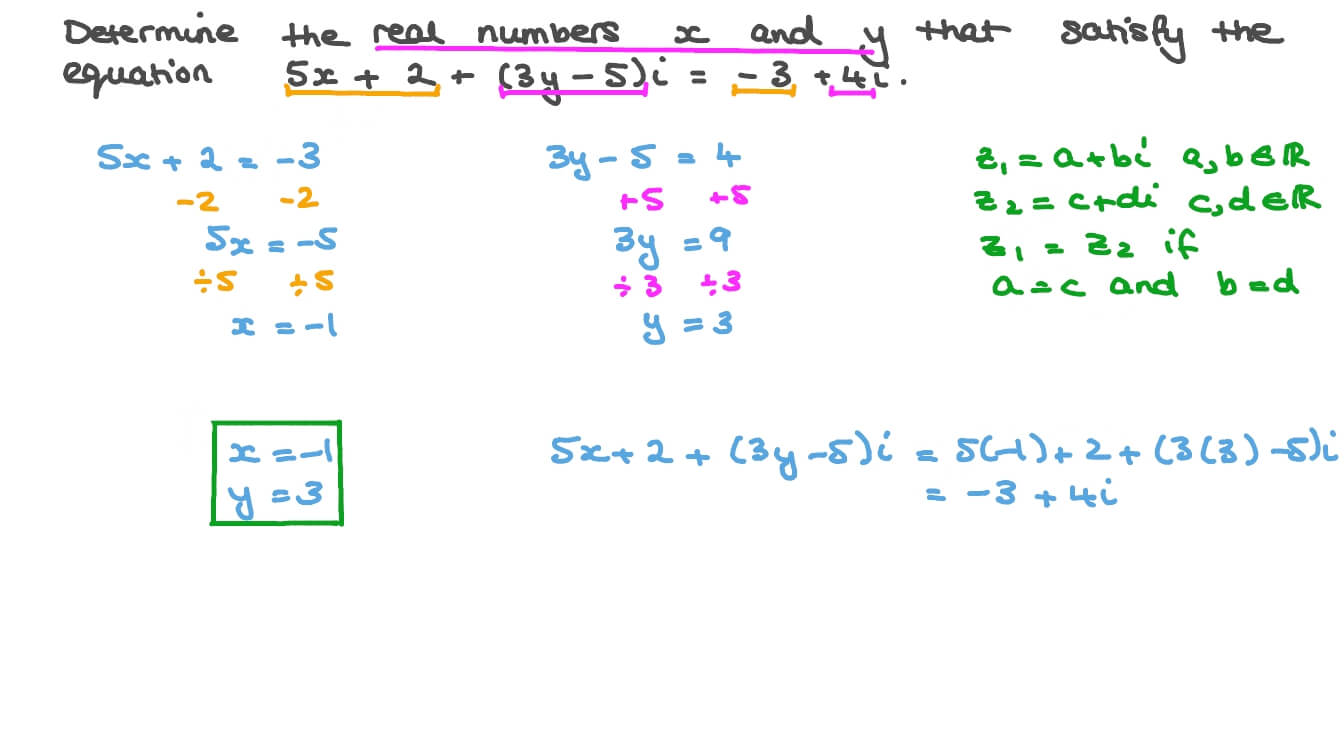 Determine the real numbers x and y that satisfy the
equation 5x + 2 + (3y - 5)i = -3 + 4i.
5x + 2 = -3
-2 -2
5x = -5
÷5 ÷5
x = -1
3y - 5 = 4
+5 +5
3y = 9
÷3 ÷3
y = 3
z₁ = a + bi a, b ∈ ℝ
z₂ = c + di c, d ∈ ℝ
z₁ = z₂ if
a = c and b = d
x = -1
y = 3
5x + 2 + (3y - 5)i = 5(-1) + 2 + (3(3) - 5)i
= -3 + 4i